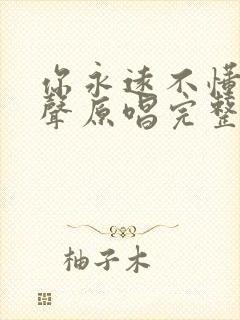 你永远不懂
聲原唱完整
柚子木